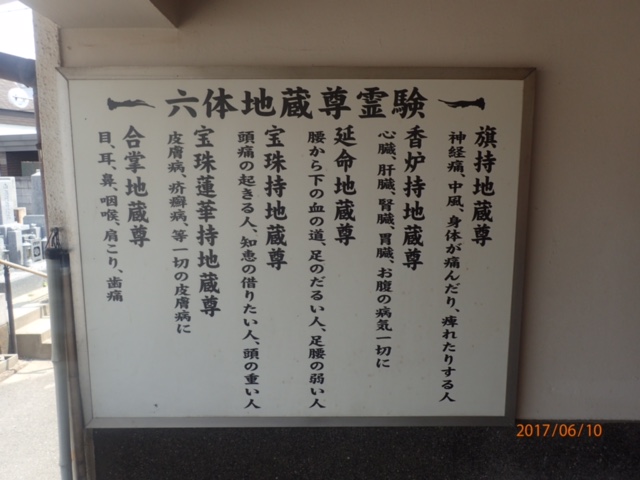 六体地蔵尊霊験
旗持地蔵尊
神経痛、中風、身体が痛んだり、痺れたりする人
香炉持地蔵尊
心臓、肝臓、腎臓、胃臓、お腹の病気一切に
延命地蔵尊
腰から下の血の道、足のだるい人、足腰の弱い人
宝珠持地蔵尊
頭痛の起きる人、知恵の借りたい人、頭の重い人
宝珠蓮華持地蔵尊
皮膚病、疥癬病、等一切の皮膚病に
合掌地蔵尊
目、耳、鼻、咽喉、肩こり、歯痛
2017/06/10